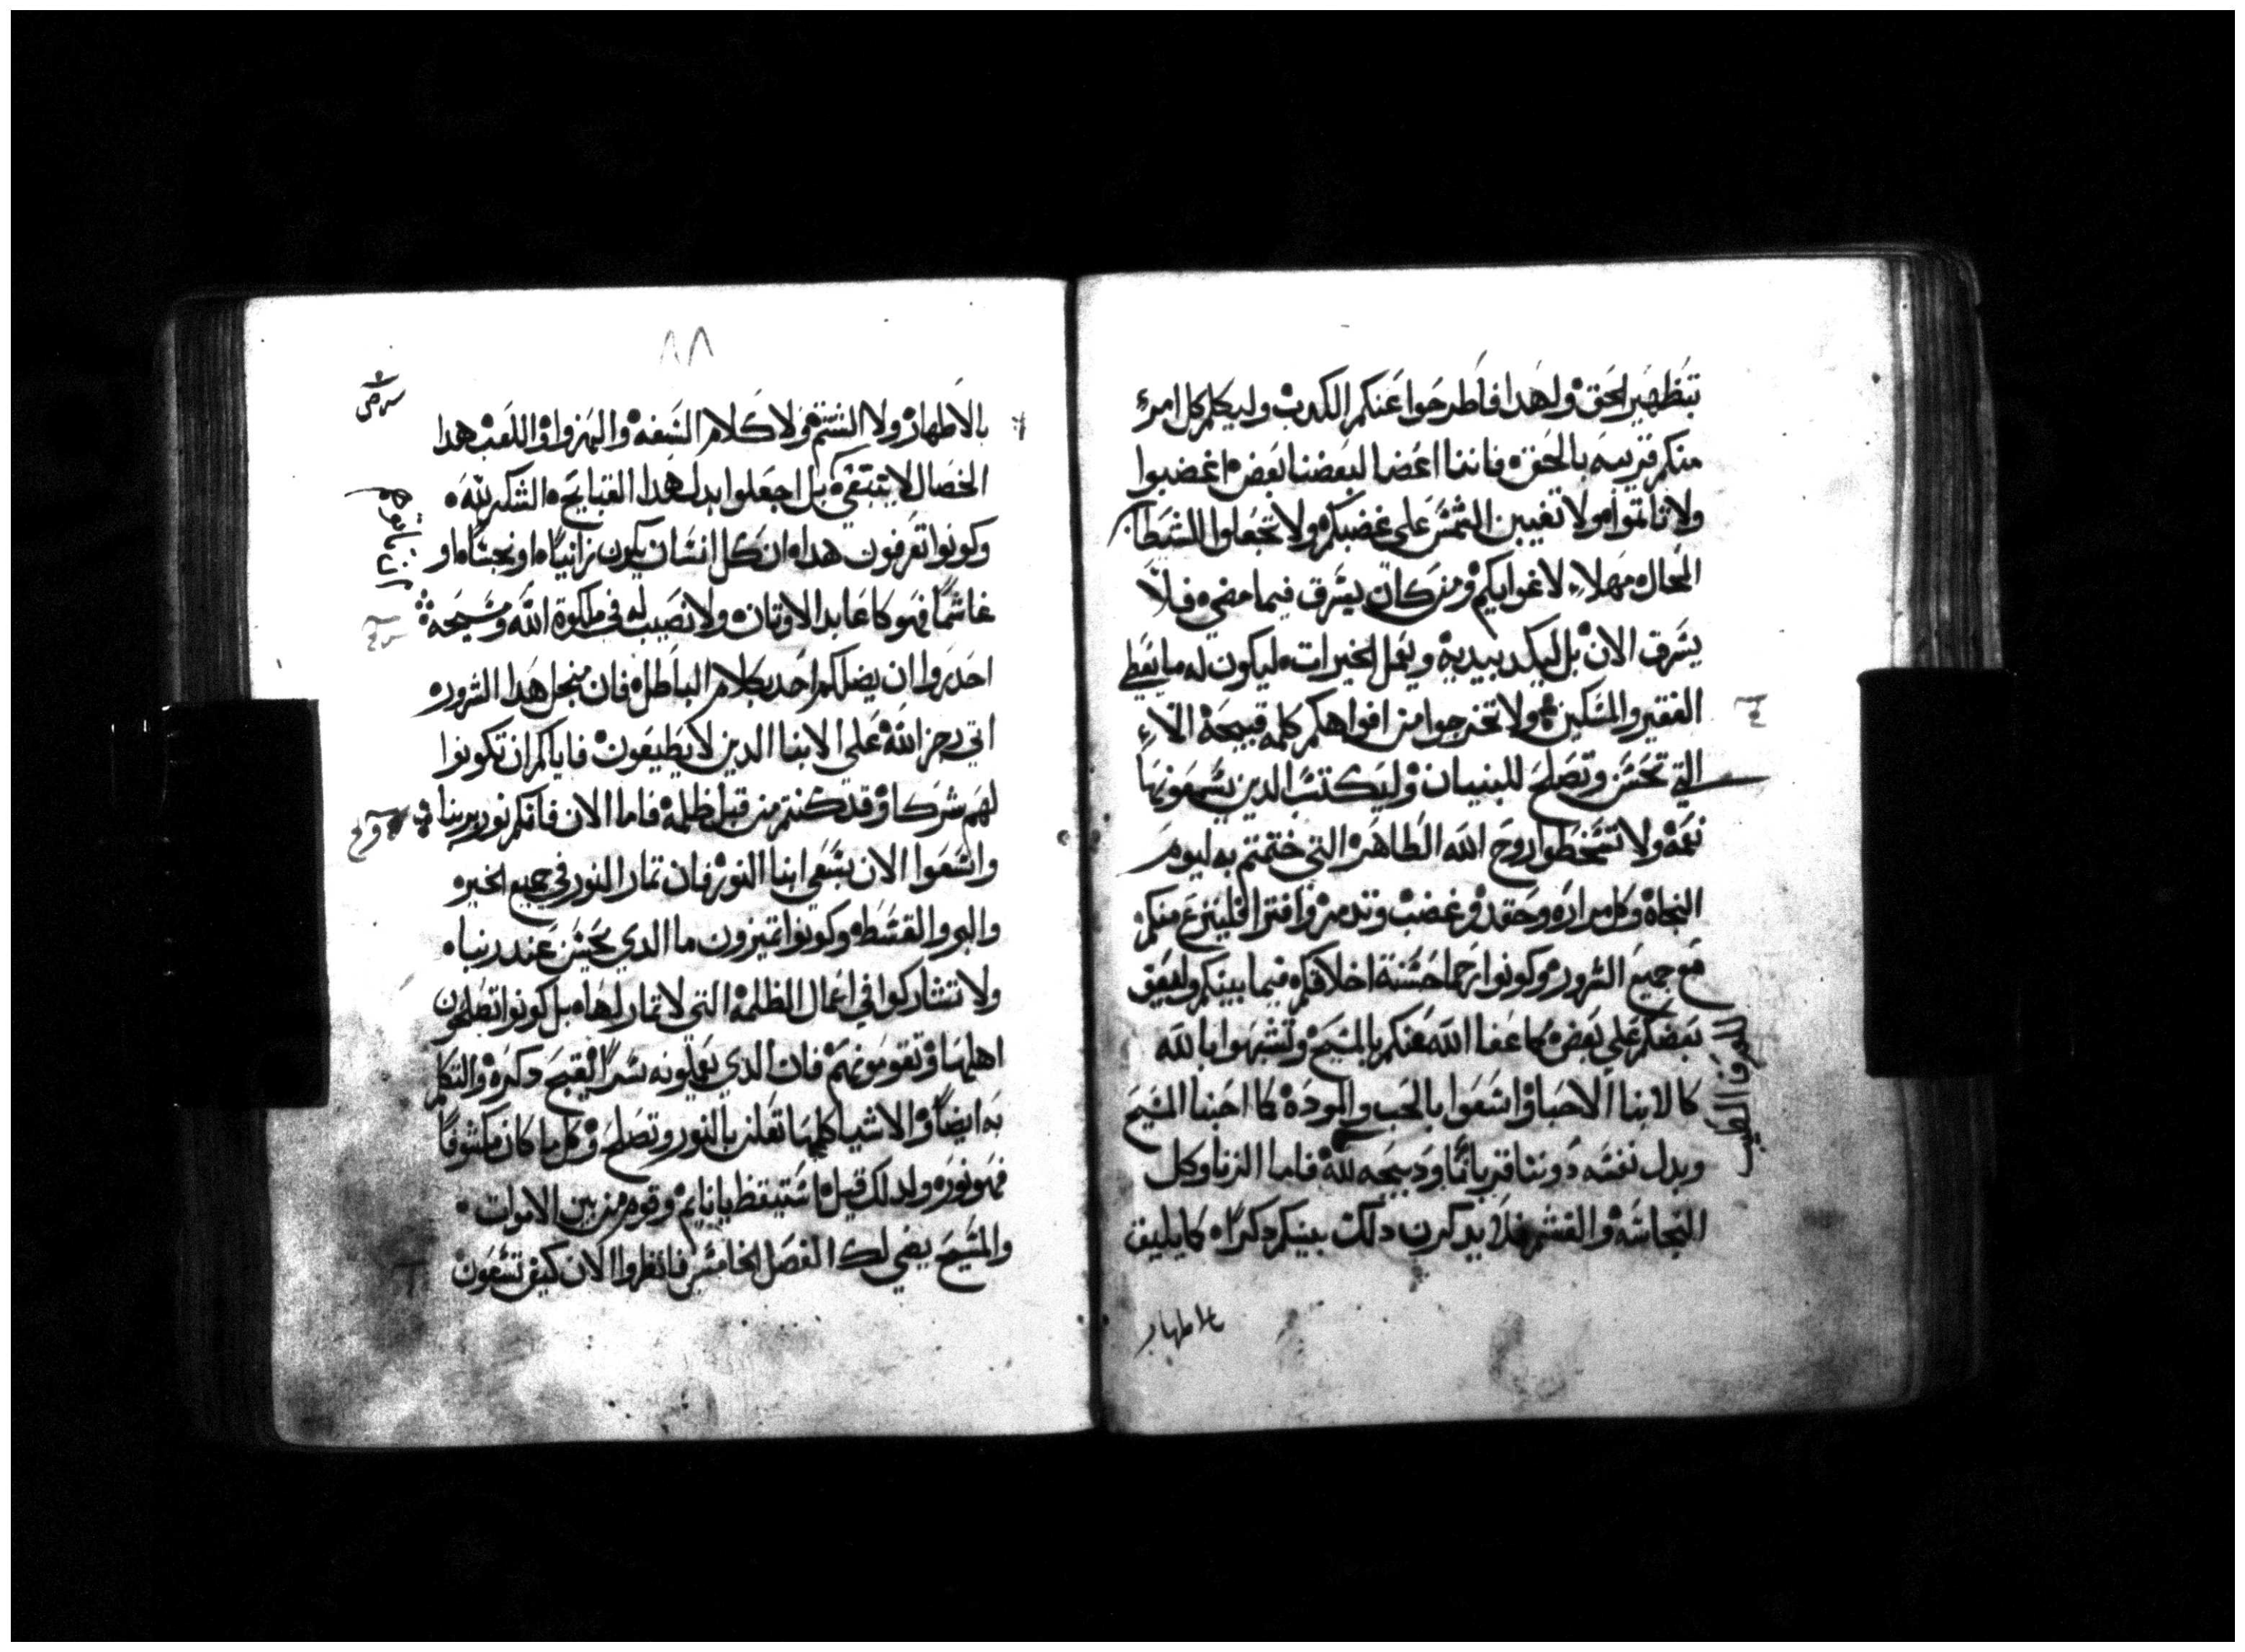 بتطهير الحق ولهدا فاطرحوا عنكم الكدب وليكلم كل امرء
منكم قريبه بالحق فاننا اعضا لبعضنا بعض اغضبوا
ولا تاتموا ولا تغيبن الشمس على غضبكم ولا تجعلوا للشيطان
المحال مهلاء لاغوايكم ومن كان يسرق فيما مضي فلا
يسرق الان بل ليكد بيديه ويعمل الخيرات ليكون له ما يعطي
الفقير والمسكين ولا تخرجوا من افواهكم كلمه قبيحة الاء
التي تحسن وتصلح للبنيان وليكتسب الدين يسمعونها
نعمة ولا تسخطوا روح الله الطاهرة التي ختمتم به ليوم
النجاة وكل مرارة وحقد وغضب وتدمر وافترا فلينزع منكم
مع جميع الشرور وكونوا رحما حسنة اخلاقكم فيما بينكم وليعف
بعضكم على بعض كما عفا الله عنكم بالمسيح وتشبهوا بالله
كالابنا الاحبا واسعوا بالحب والمودة كما احبنا المسيح
وبدل نفسه دوننا قربانا ودبيحه لله فاما الزنا وكل
النجاسه والغشم فلا يدكرن دلك بينكم دكرا كما يليق
للعرف الطيب
بالاطهار
٨٨
بالاطهار ولا الشتم ولا كلام السفه والهزوا واللعب هدا
الخصال لا تبتغي بل اجعلوا بدل هدا القبايح الشكر لله
وكونوا تعرفون هدا ان كل انسان يكون زانيا او نجسا او
غاشما فهو كاعابد الاوتان ولا نصيب له في ملكوة الله ومسيحه
احدروا ان يضلكم احد بكلام الباطل فان منجل هدا الشرور
اتي رجز الله على الابنا الدين لا يطيعون فاياكم ان تكونوا
لهم شركا وقد كنتم من قبل ظلمة فاما الان فانكم نور بربنا
واسعوا الان بسعي ابنا النور فان تمار النور في جميع الخير
والبر والقسط وكونوا تميزون ما الدي يحسن عند ربنا
ولا تشاركوا في اعمال الظلمة التي لا تمار لها بل كونوا تصلحون
اهلها وتقومونهم فان الدي يعملونه سرا لقبيح دكره والتكلم
به ايضا والاشيا كلها تعلن بالنور وتصلح وكل ما كان مكشوفا
فهو نوره ولدلك قيل استيقظ يا نايم وقوم من بين الاموات
والمسيح يضي لك الفصل الخامس فانظروا الان كيف تسعون